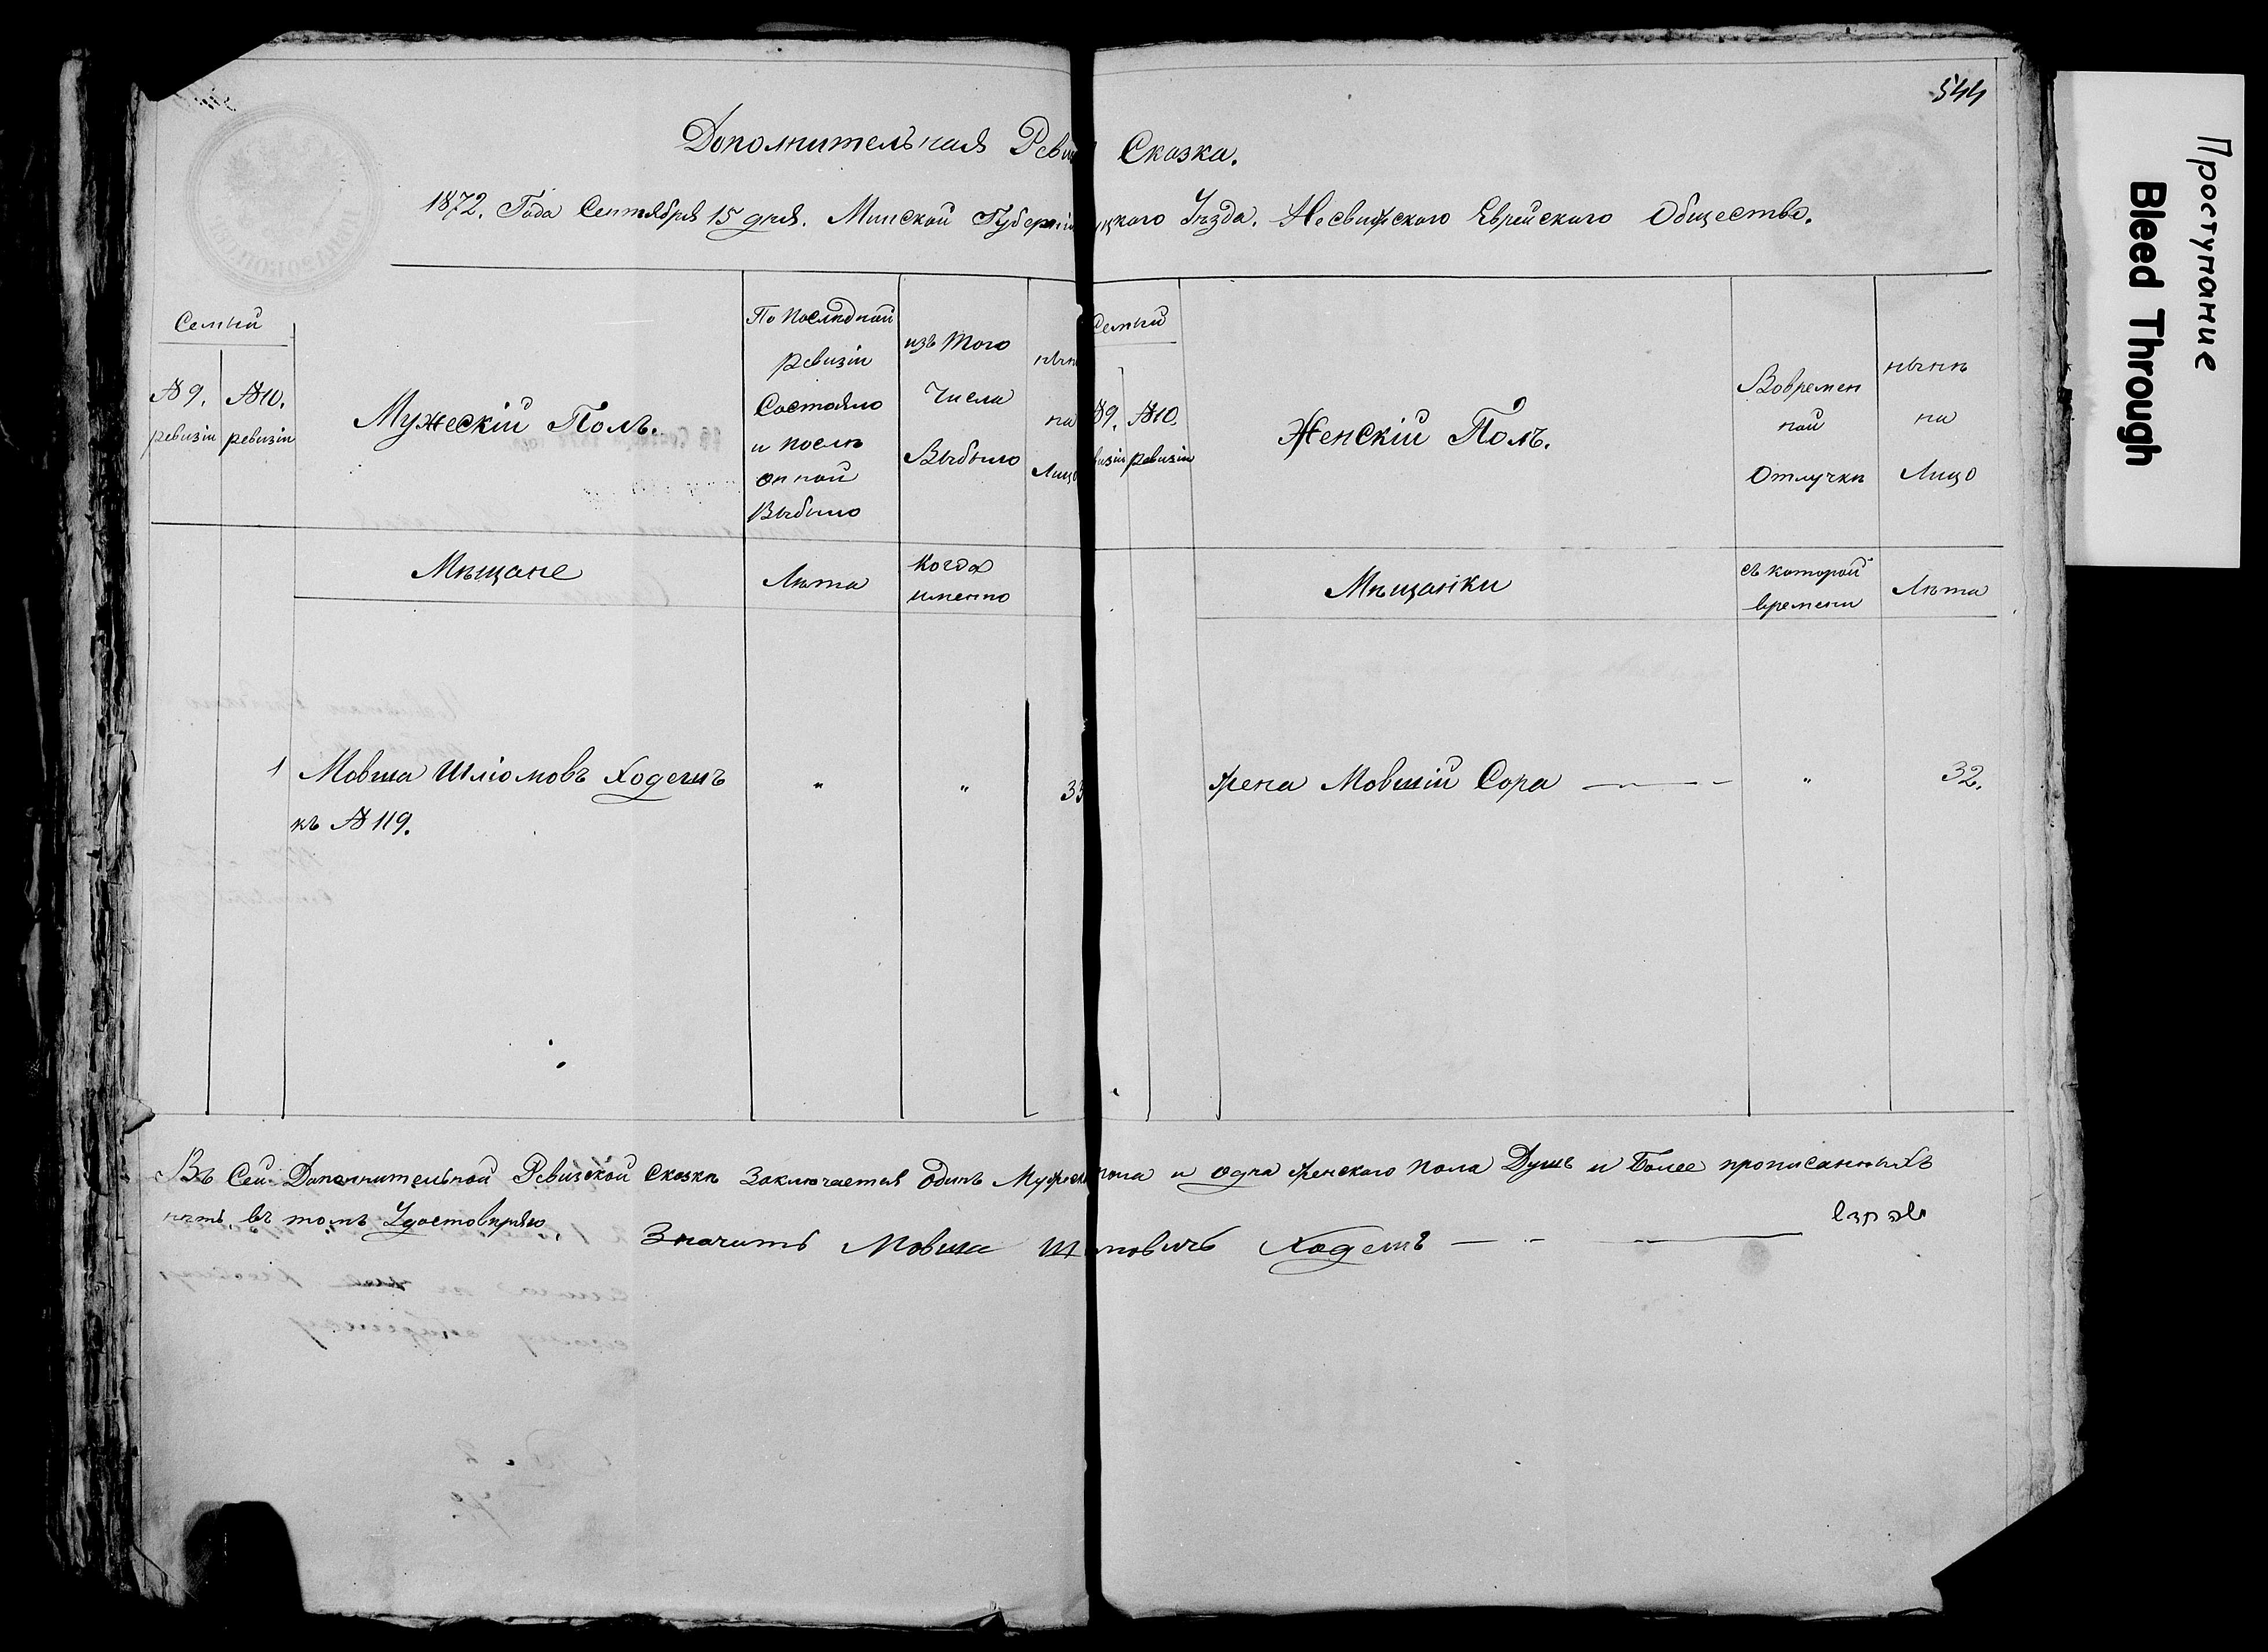 544
Дополнительная Ревиз Сказка.
1872. Года Сентября 15 дня. Минской Губерніи цкого Уѣзда. Несвижского Еврейского Общества.
Семьи
№ 9. ревизіи
№ 10. ревизіи
Мужескій Полъ.
По последной ревизіи Состояло и после оной Выбыло
изъ того Числа Выбыло
нын на Лицо
Семьи
№ 9. визіи
№ 10. ревизіи
Женскій Полъ.
Вовремен ной Отлучкѣ
нынѣ на Лицо
Мѣщане
Лѣта
Когда именно
Мѣщанки
съ которой времени
Лѣта
1 Мовша Шліомовъ Ходешъ " " 33
къ № 119.
жена Мовшій Сора " 32.
Въ Сей Дополнительной Ревизской Сказкѣ Заключается Одинъ Мужеск пола и одна женского пола Душъ и Более прописанныхъ
нѣтъ, въ томъ Удостовѣряю,
Значитъ Мовша Ш мовичъ Ходешъ
Проступание
Bleed Through